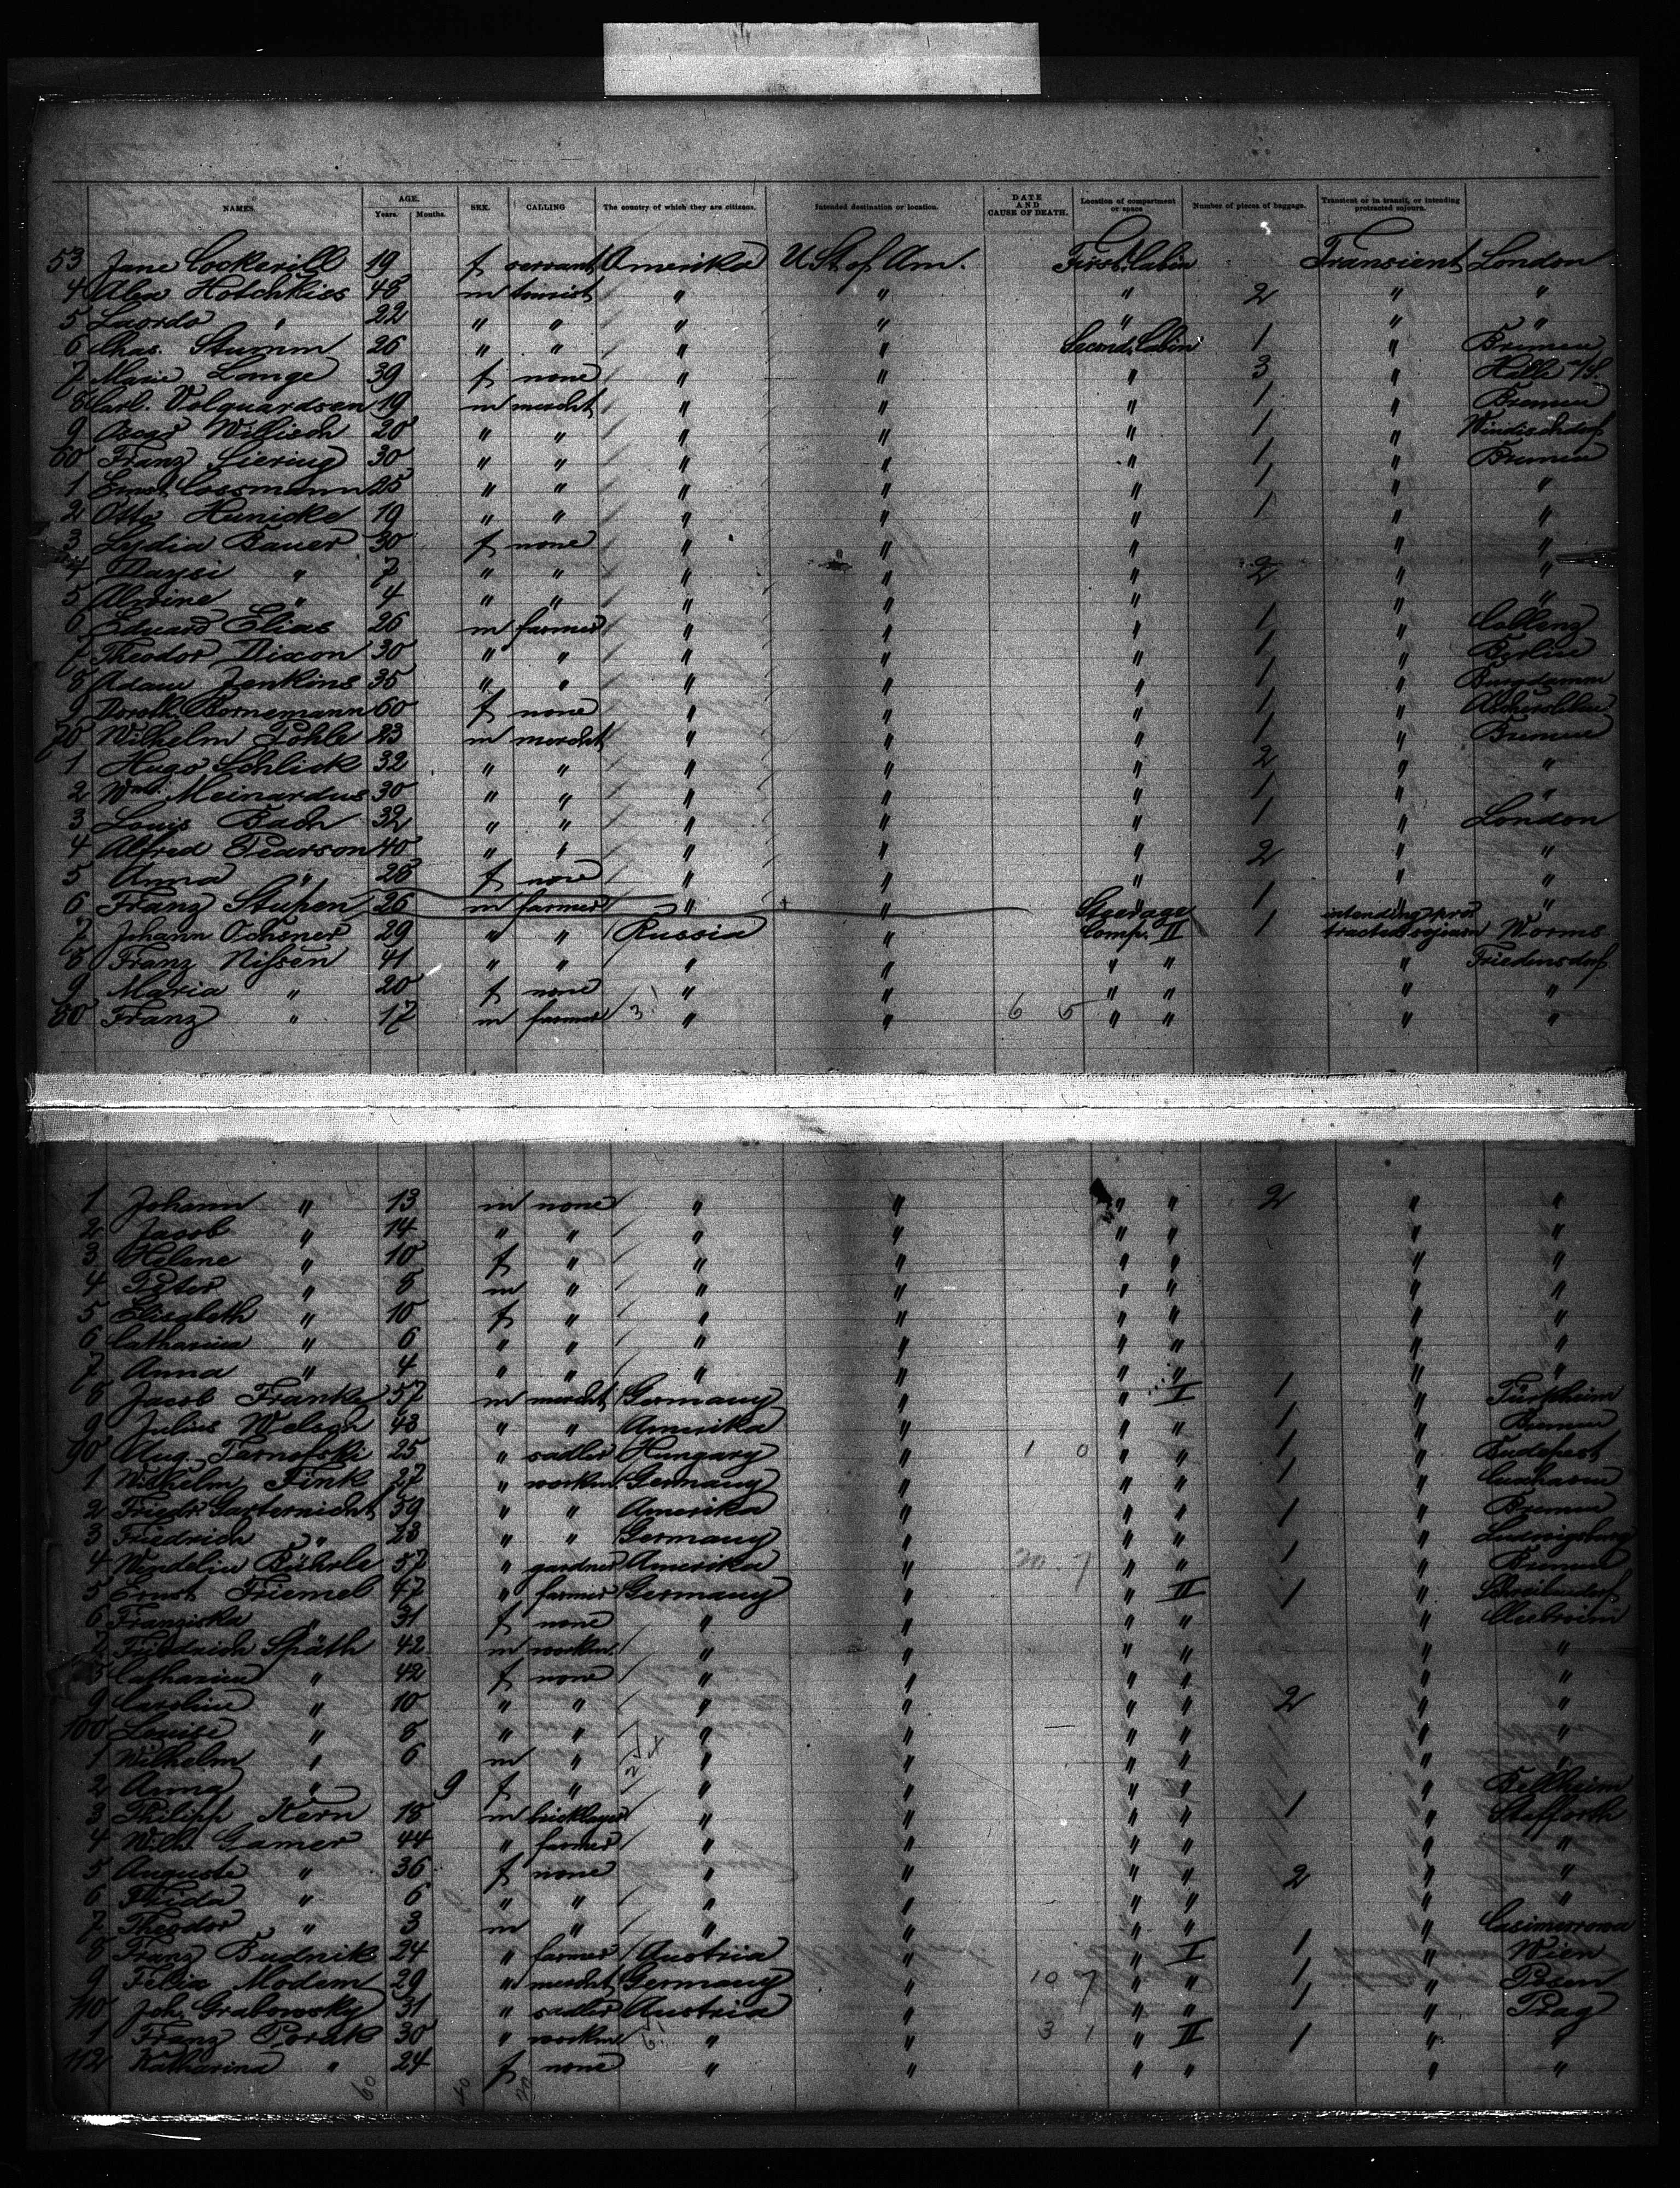 NAMES. AGE. Years. Months. SEX. CALLING The country of which they are citizens. Intended destination or location. DATE AND CAUSE OF DEATH. Location of compartment or space Number of pieces of baggage. Transient or in transit, or intending protracted sojourn.
53 Jane Cockerill 19 f servant Amerika U St of Am. First Cabin Transient London
4 Alex Hotchkiss 48 m tourist " " " 2 " "
5 " 22 " " " " " " "
6 Chas. Stumm 26 " " " " Second Cabin 1 " Bremen
7 Marie Lange 39 f none " " " 3 " Halle a/S.
8 Carl. Volquardsen 19 m mercht " " " 1 " Bremen
9 Willisch 20 " " " " " 1 " Windischdorf
60 Franz Siering 30 " " " " " 1 " Bremen
1 Ernst Cossmann 25 " " " " " 1 " "
2 Otto Hunicke 19 " " " " " 1 " "
3 Lydia Bauer 30 f none " " " " "
4 Daysi " 7 " " " " " 2 " "
5 " 4 " " " " " " "
6 Eduard Elias 26 m farmer " " " 1 " Coblenz
7 Theodor Dixon 30 " " " " " 1 " Berlin
8 Adam Jenkins 35 " " " " " 1 " Burgdamm
9 Doroth. Bornemann 60 f none " " " 1 " Aschersleben
70 Wilhelm Pohle 23 m mercht " " " 1 " Bremen
1 Hugo Schlick 32 " " " " " 2 " "
2 Wm. Meinardus 30 " " " " " 1 " "
3 Louis Bach 32 " " " " " 1 " London
4 Alfred Pearson 40 " " " " " 2 " "
5 Anna " 28 f none " " " " "
6 Franz Stüben 26 m farmer " " " 1 "
7 Johann Ochsner 29 " " Russia " Steerage Comp. II 1 intending protracted sojourn Worms
8 Franz Nissen 41 " " " " " " " Friedensdorf
9 Maria " 20 f none " " " " " "
80 Franz " 17 m farmer 3 " " 6 5 " " " "
1 Johann " 13 m none " " " " 2 " "
2 Jacob " 14 " " " " " " "
3 Helene " 10 f " " " " " "
4 Peter " 8 m " " " " " "
5 Elisabeth " 10 f " " " " " "
6 Catharina " 6 " " " " " " " "
7 Anna " 4 " " " " " " " "
8 Jacob Franke 57 m mercht Germany " " I 1 " Türkheim
9 Julius Nielson 48 " " Amerika " " " 1 " Bremen
90 Aug. Tarnofski 25 " sadler Hungary " 1 0 " " 1 " Budapest
1 Wilhelm Fink 27 " workm. Germany " " " 1 " Cuxhaven
2 Friedr. Gasternicht 59 " " Amerika " " " 1 " Bremen
3 Friedrich " 28 " " Germany " " " " Ludwigsburg
4 Wendelin Bührle 57 " gardner Amerika " 30 7 " " 1 " Bremen
5 Ernst Friemel 47 " farmer Germany " " II 1 " Schreibendorf
6 Franziska " 31 f none " " " " "
7 Friedrich Späth 42 m workm. " " " " " "
8 Catharina " 42 f none " " " " " "
9 Caroline " 10 " " " " " " 2 " "
100 Louise " 8 " " " " " " " "
1 Wilhelm " 6 m " " " " " " "
2 Anna " 9 f " " " " " " Bellheim
3 Philipp Kern 18 m bricklayer " " " " 1 " Staffforth
4 Wilh. Gamer 44 " farmer " " " " " "
5 Auguste " 36 f none " " " " 2 " "
6 Frieda " 6 " " " " " " " "
7 Theodor " 3 m " " " " " "
8 Franz Budnik 24 " farmer Austria " " I 1 " Wien
9 Felix Modem 29 " mercht Germany " 10 7 " " 1 " Posen
110 Joh. Grabowsky 31 " sadler Austria " " " 1 " Prag
1 Franz Porak 30 " workm " " 3 1 " II 1 " "
112 Katharina " 24 f none " " " " " "
60 40 20